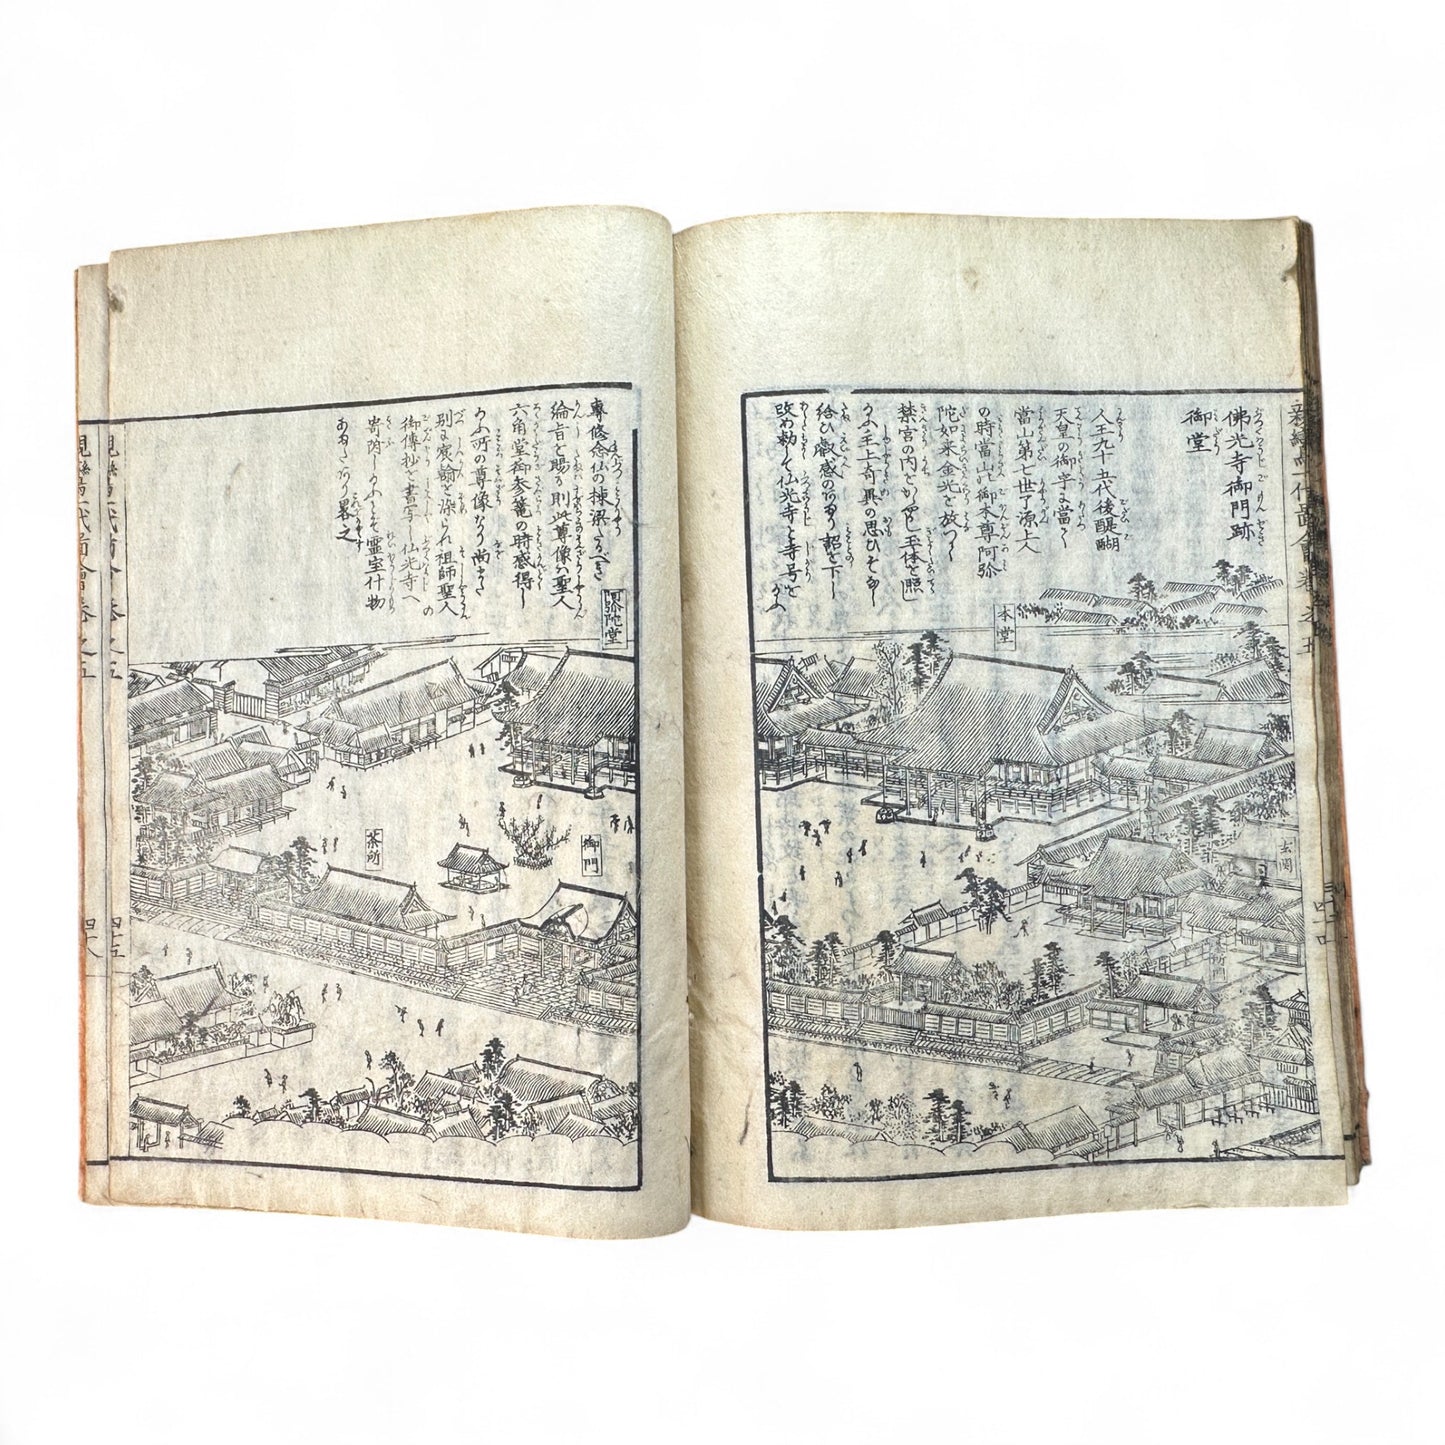 佛光寺御門跡
御堂
人王九十五代後醍醐
天皇の御宇に當つて
當山第七世了源上人
の時當山此御本尊阿弥
陀如来金光を放つて
禁宮の内をかゞやし玉体を照し
たまふ主上奇異の思ひをなし
給ひ叡感のあまり詔を下し
改め勅して仏光寺と寺号を
専修念仏の棟梁たるべき
綸旨を賜ふ則此尊像ハ聖人
六角堂御参篭の時感得し
たまふ所の尊像なり尚
別に宸翰を染られ祖師聖人の
御傳抄を書写し仏光寺へ
寄附したまふ其霊室什物
あまたあり畧之
本堂
玄関
阿弥陀堂
御門
茶所
四十五
四十八